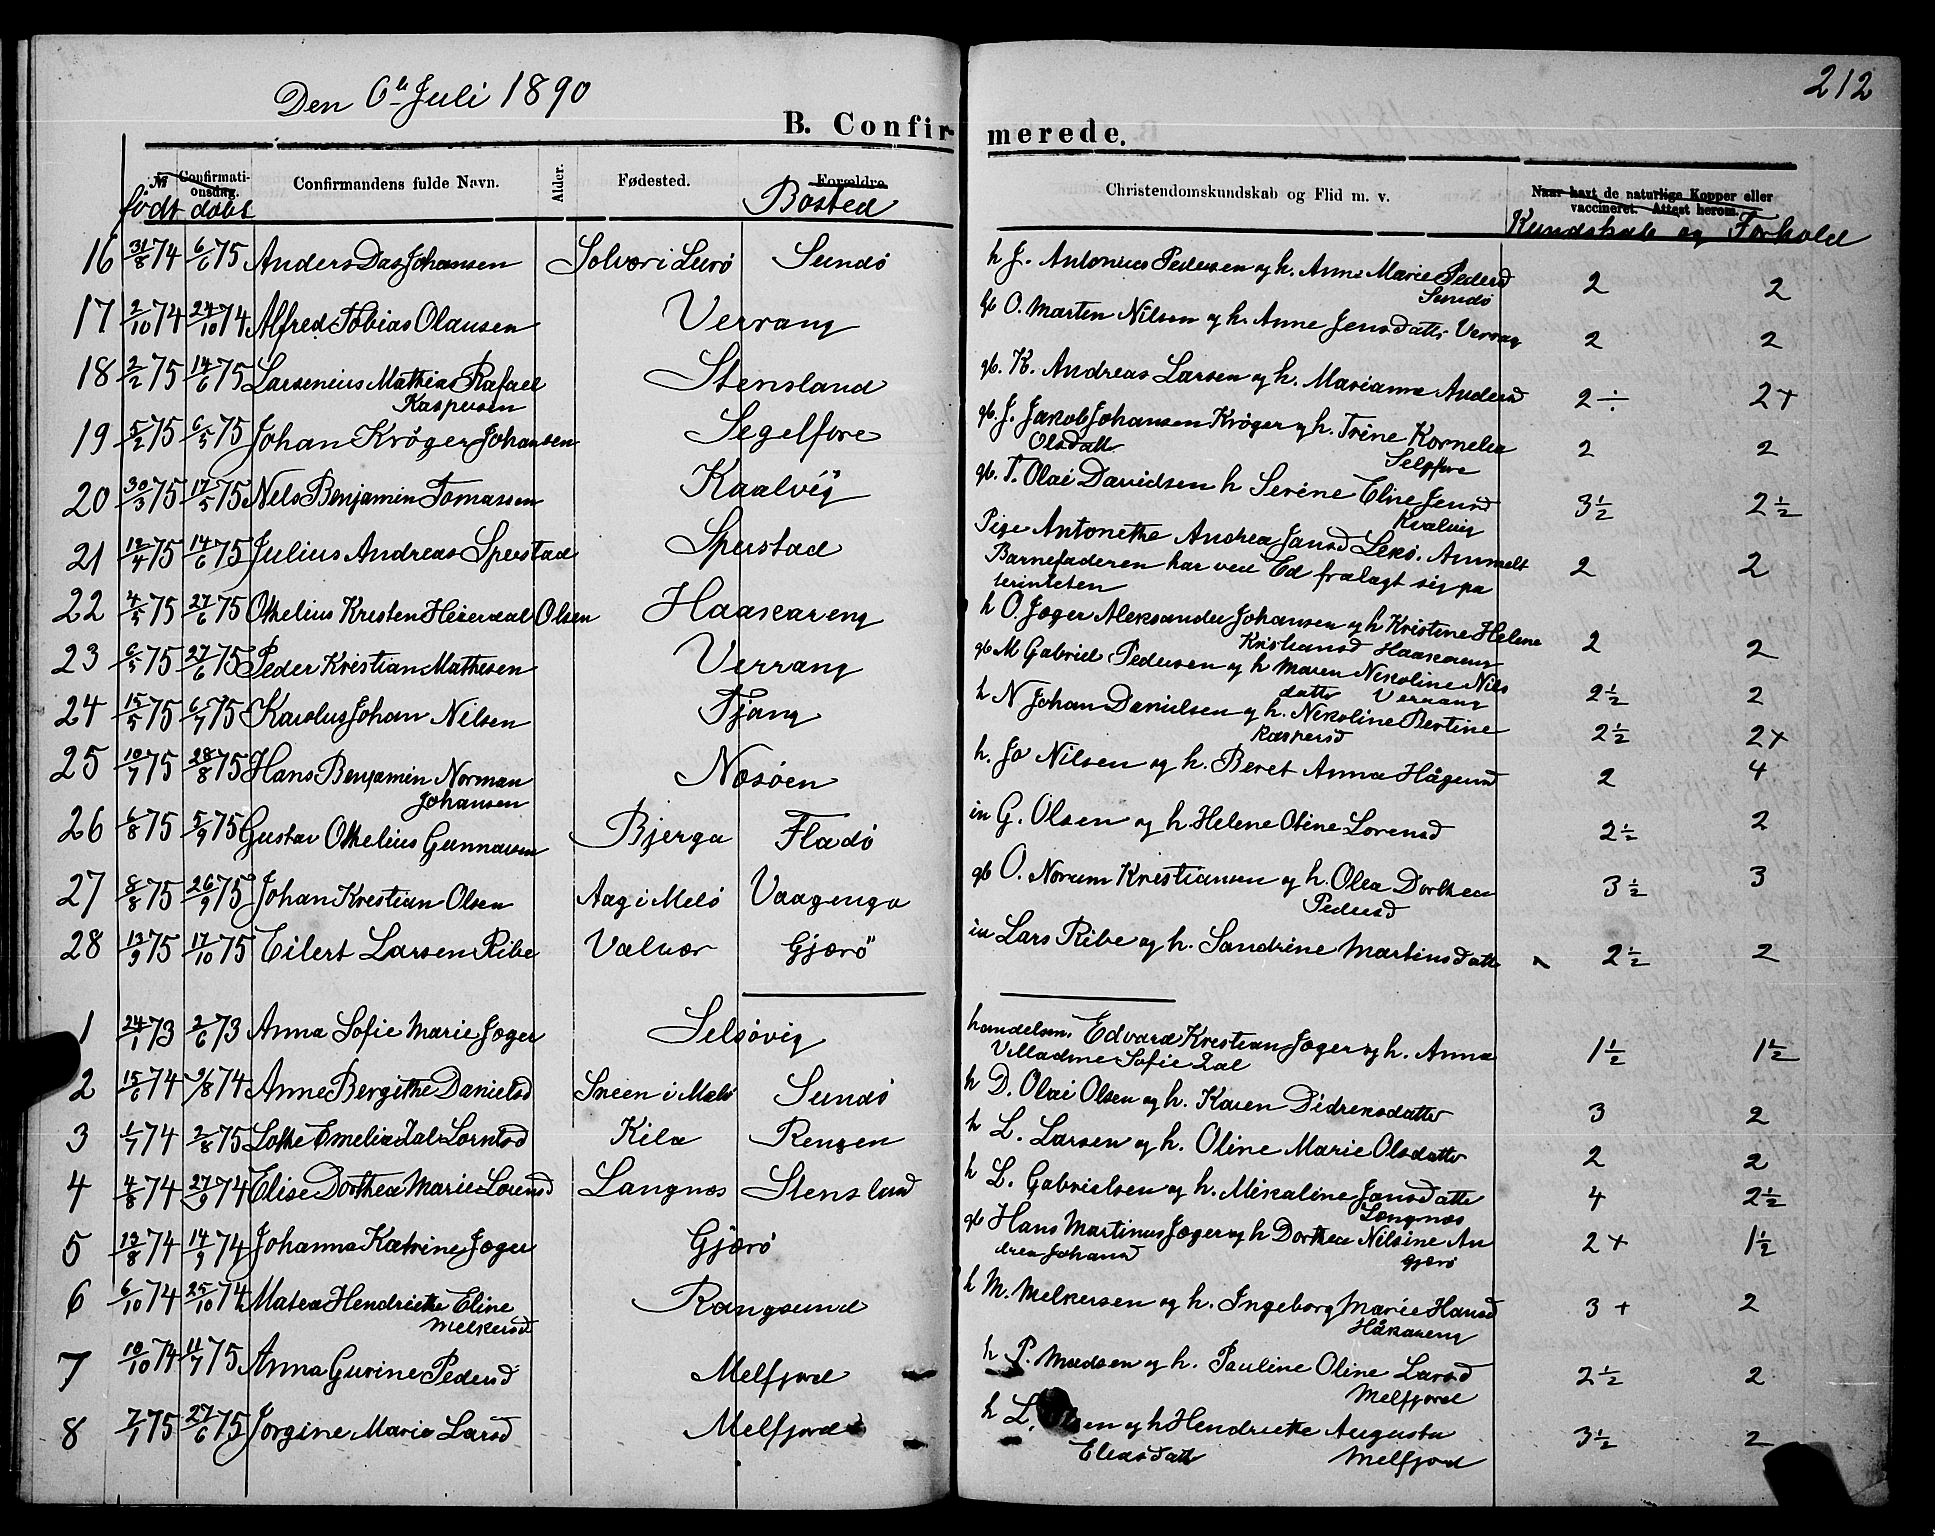 Den 6te Juli 1890
212
B. Confirmerede.
№ født
Confirmationsdag. døbt
Confirmandens fulde Navn.
Alder.
Fødested.
Forældre Bosted
Christendomskundskab og Flid m. v.
Naar havt de naturlige Kopper eller vaccineret. Attest herom.
Kundskab og Forhold
16 31/8 74 6/6 75 Anders Das Johansen Solvær i Lurø Sundø h J. Antonius Pedersen og h. Anne Marie Pedersd 2 2
Sundø
17 2/10 74 24/10 74 Alfred Tobias Olausen Verrang gb O. Marten Nilsen og h. Anne Jensdatter Verrang 2 2
18 2/2 75 14/6 75 Larsenius Mathias Rafael Stensland gb. K. Andreas Larsen og h. Marianne Andersd 2÷ 2+
Kaspersen
19 5/2 75 6/5 75 Johan Krøger Johansen Segelfore gb. J. Jakob Johansen Krøger og h. Trine Kornelia 2 2
Olsdatt Selsfore
20 30/3 75 17/5 75 Nels Benjamin Tomassen Kaalvig gb. T. Olai Davidsen h Serine Eline Jensd 3½ 2½
Kvalvig
21 12/4 75 14/6 75 Julius Andreas Spustad Spustad Pige Antonethe Andrea Jansd Lekø. Anmelt 2 2
Barnefaderen har ved Ed fralagt sig pa
terinteten
22 4/5 75 27/6 75 Othelius Kristen Heierdal Olsen Haakareng h O. Jæger Aleksander Johansen og h Kristine Helene 2 2
Kristiansd Haakareng
23 6/5 75 27/6 75 Peder Kristian Mathisen Verrang gb M Gabriel Pedersen og h Maren Nekoline Nils 2½ 2
datter Verrang
24 15/5 75 6/7 75 Karolus Johan Nilsen Tjong h N Johan Danielsen og h. Nekoline Bertine 2½ 2+
Kaspersd
25 10/7 75 28/8 75 Hans Benjamin Norman Nosøen h. Jo Nilsen og h. Beret Anna Hågensd 2 4
Johansen
26 6/8 75 5/9 75 Gustav Othelius Gunnarsen Bjerga Fladø in G. Olsen og h. Helene Oline Lorensd 2½ 2
27 8/8 75 26/9 75 Johan Kristian Olsen Aag i Melø Vaagenga gb O. Norum Kristiansen og h. Olea Dorthea 3½ 3
Pedersd
28 13/9 75 17/10 75 Eilert Larsen Ribe Valvær Gjærø in Lars Ribe og h. Sandrine Martinsdatter 2½ 2
1 24/1 73 2/6 73 Anna Sofie Marie Jæger Selsøvig handelsm. Edvard Kristian Jæger og h. Anna 1½ 1½
Villadine Sofie Zal
2 15/6 74 2/8 74 Anne Bergithe Danielsd Sneen i Melø Sundø h D. Olai Olsen og h. Karen Didreksdatter 3 2
3 1/7 74 2/8 75 Lothe Emelia Zal Lorntsd Kila Rengen h L. Larsen og h. Oline Marie Olsdatter 2 2
4 4/8 74 27/9 74 Elise Dorthea Marie Lorensd Langnes Stensland h L. Gabrielsen og h. Mikaline Jansdatter 4 2½
Langnæs
5 13/8 74 14/9 74 Johanna Katrine Jæger Gjærø gb Hans Martinus Jæger og h Dorthea Nilsine An 2+ 1½
drea Johansd Gjærø
6 6/10 74 25/10 74 Matea Hendriette Eline Rangsund h M. Melkersen og h. Ingeborg Marie Hansd 3+ 2
Melkersd Håkareng
7 10/10 74 11/7 75 Anna Gurine Pedersd Melfjord h P. Madsen og h. Pauline Oline Larsd 2½ 2
Melfjord
8 7/1 75 27/6 75 Jorgine Marie Larsd Melfjord h L. en og h Hendriette Augusta 3½ 2
Eliasdatt Melfjord